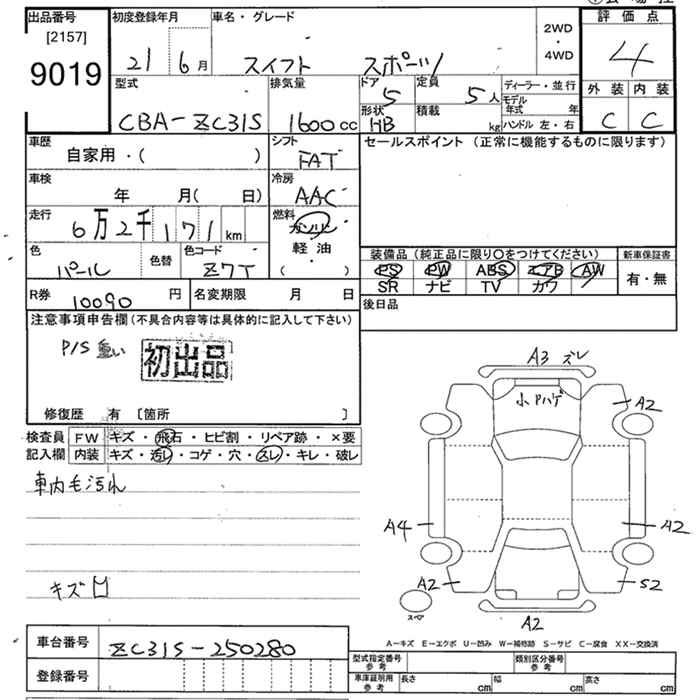 出品番号 初度登録年月 車名・グレード 評価点
[2157]
9019 21 6月 スイフト スポーツ 2WD・4WD 4
型式 排気量 ドア 定員 ディーラー・並行 外装 内装
CBA-ZC31S 1600cc 5 5人 モデル年式 年 C C
形状 積載 ハンドル 左・右
HB kg
車歴 シフト セールスポイント (正常に機能するものに限ります)
自家用・( ) FAT
車検 冷房
年 月( 日) AAC
走行 燃料
6万2千171km ガソリン
軽油
( )
色 色替 色コード 装備品(純正品に限り○をつけてください) 新車保証書
パール Z7T PS PW ABS エアB AW 有・無
SR ナビ TV カワ
R券 10090円 名変期限 月 日 後日品
注意事項申告欄(不具合内容等は具体的に記入して下さい)
P/S重い 初出品
修復歴 有 [箇所 ]
検査員 FW キズ・飛石・ヒビ割・リペア跡・×要
記入欄 内装 キズ・汚レ・コゲ・穴・スレ・キレ・破レ
車内毛汚れ
キズ
A3 ズレ
小Pハゲ
A2
A4
A2
A2
S2
スペア
A2
A-キズ E-エクボ U-凹み W-補修跡 S-サビ C-腐食 XX-交換済
車台番号 ZC31S-250280
型式指定番号 参考 類別区分番号 参考
登録番号
車庫証明用 参考 長さ cm 幅 cm 高さ cm